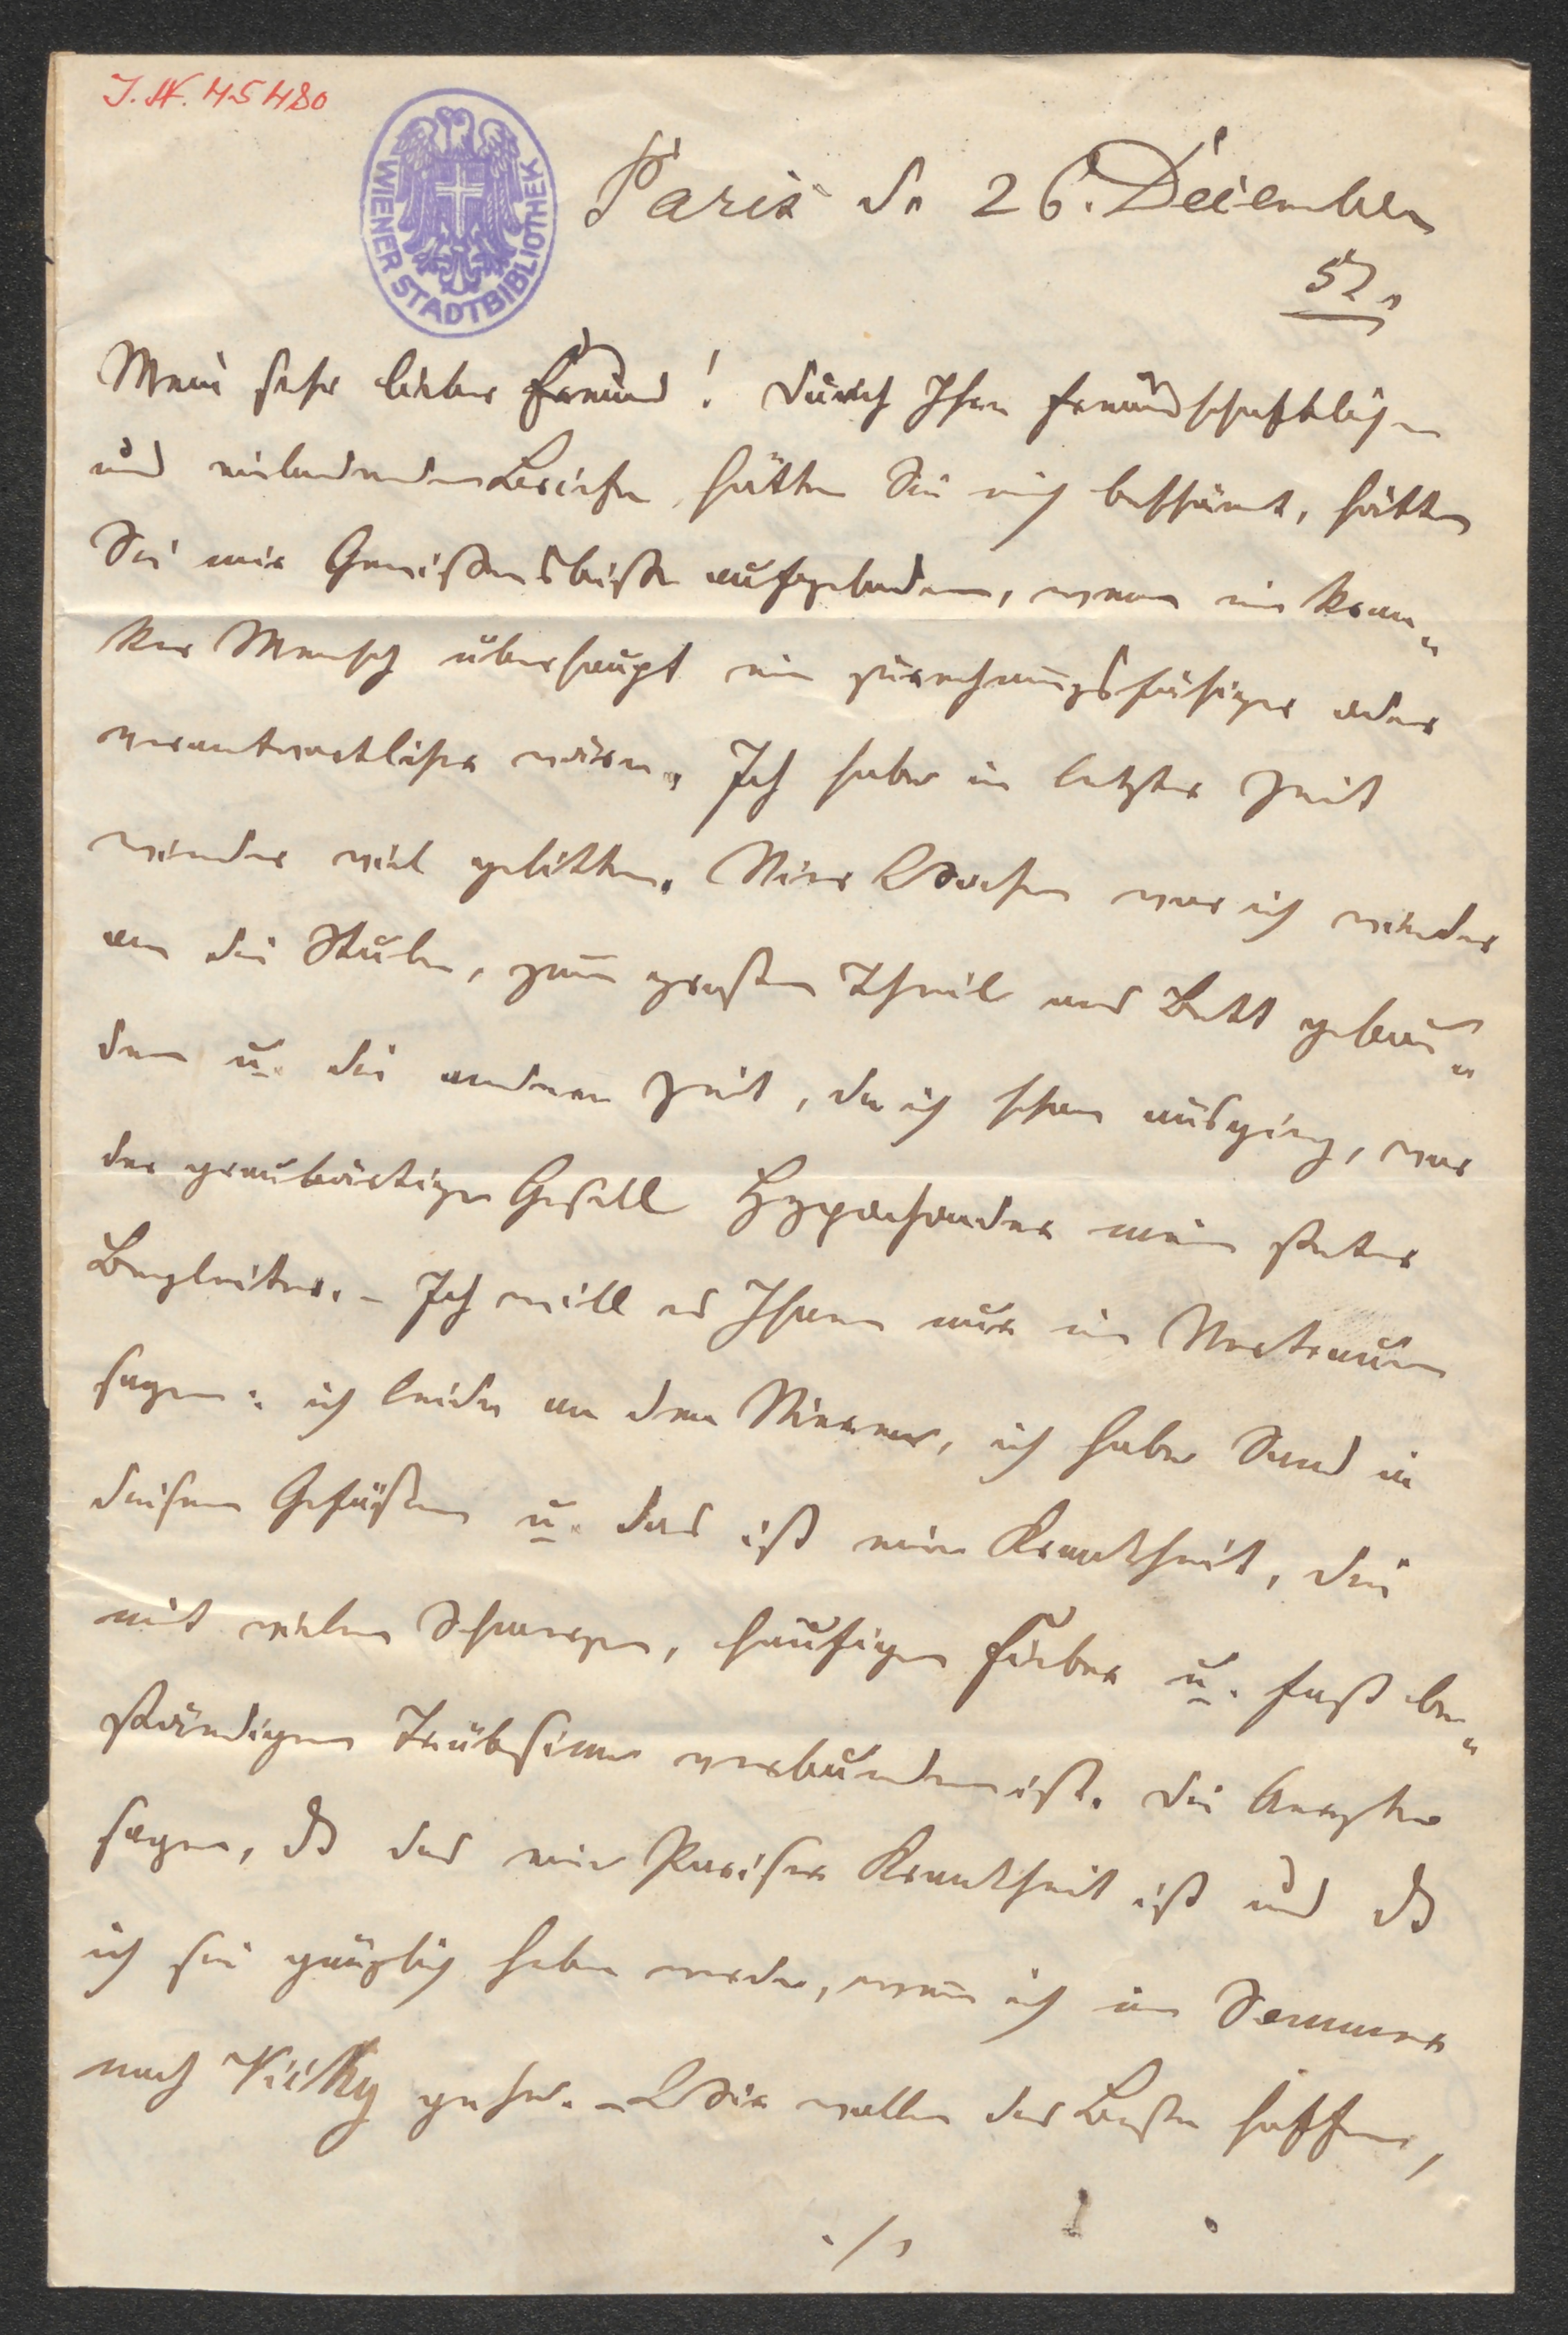 I. N. 45480
WIENER STADTBIBLIOTHEK
Paris d. 26. December
52.
Mein sehr lieber Freund! Durch Ihre freundschaftlichen
und einladenden Briefe hätten Sie mich beschämt, hätten
Sie mir Gewißensbiße aufgeladen, wenn ein kran„
ker Mensch überhaupt ein zurechnungsfähiger oder
verantwortlicher wäre. Ich habe in letzter Zeit
wieder viel gelitten. Vier Wochen war ich wieder
an die Stube, zum großen Theil ans Bett gebun„
den u. die andere Zeit, da ich schon ausging, war
der graubärtige Gesell Hypochonder mein steter
Begleiter. – Ich will es Ihnen nur im Vertrauen
sagen: ich leide an den Nieren, ich habe Sand in
diesen Gefäßen u. das ist eine Krankheit, die
mit vielen Schmerzen, häufigem Fieber u. fast be„
ständigem Trübsinne verbunden ist. Die Aerzte
sagen, dß das eine Pariser Krankheit ist und dß
ich sie gänzlich heben werde, wenn ich im Sommer
nach Vichy gehe. – Wir wollen das Beste hoffen,
./.